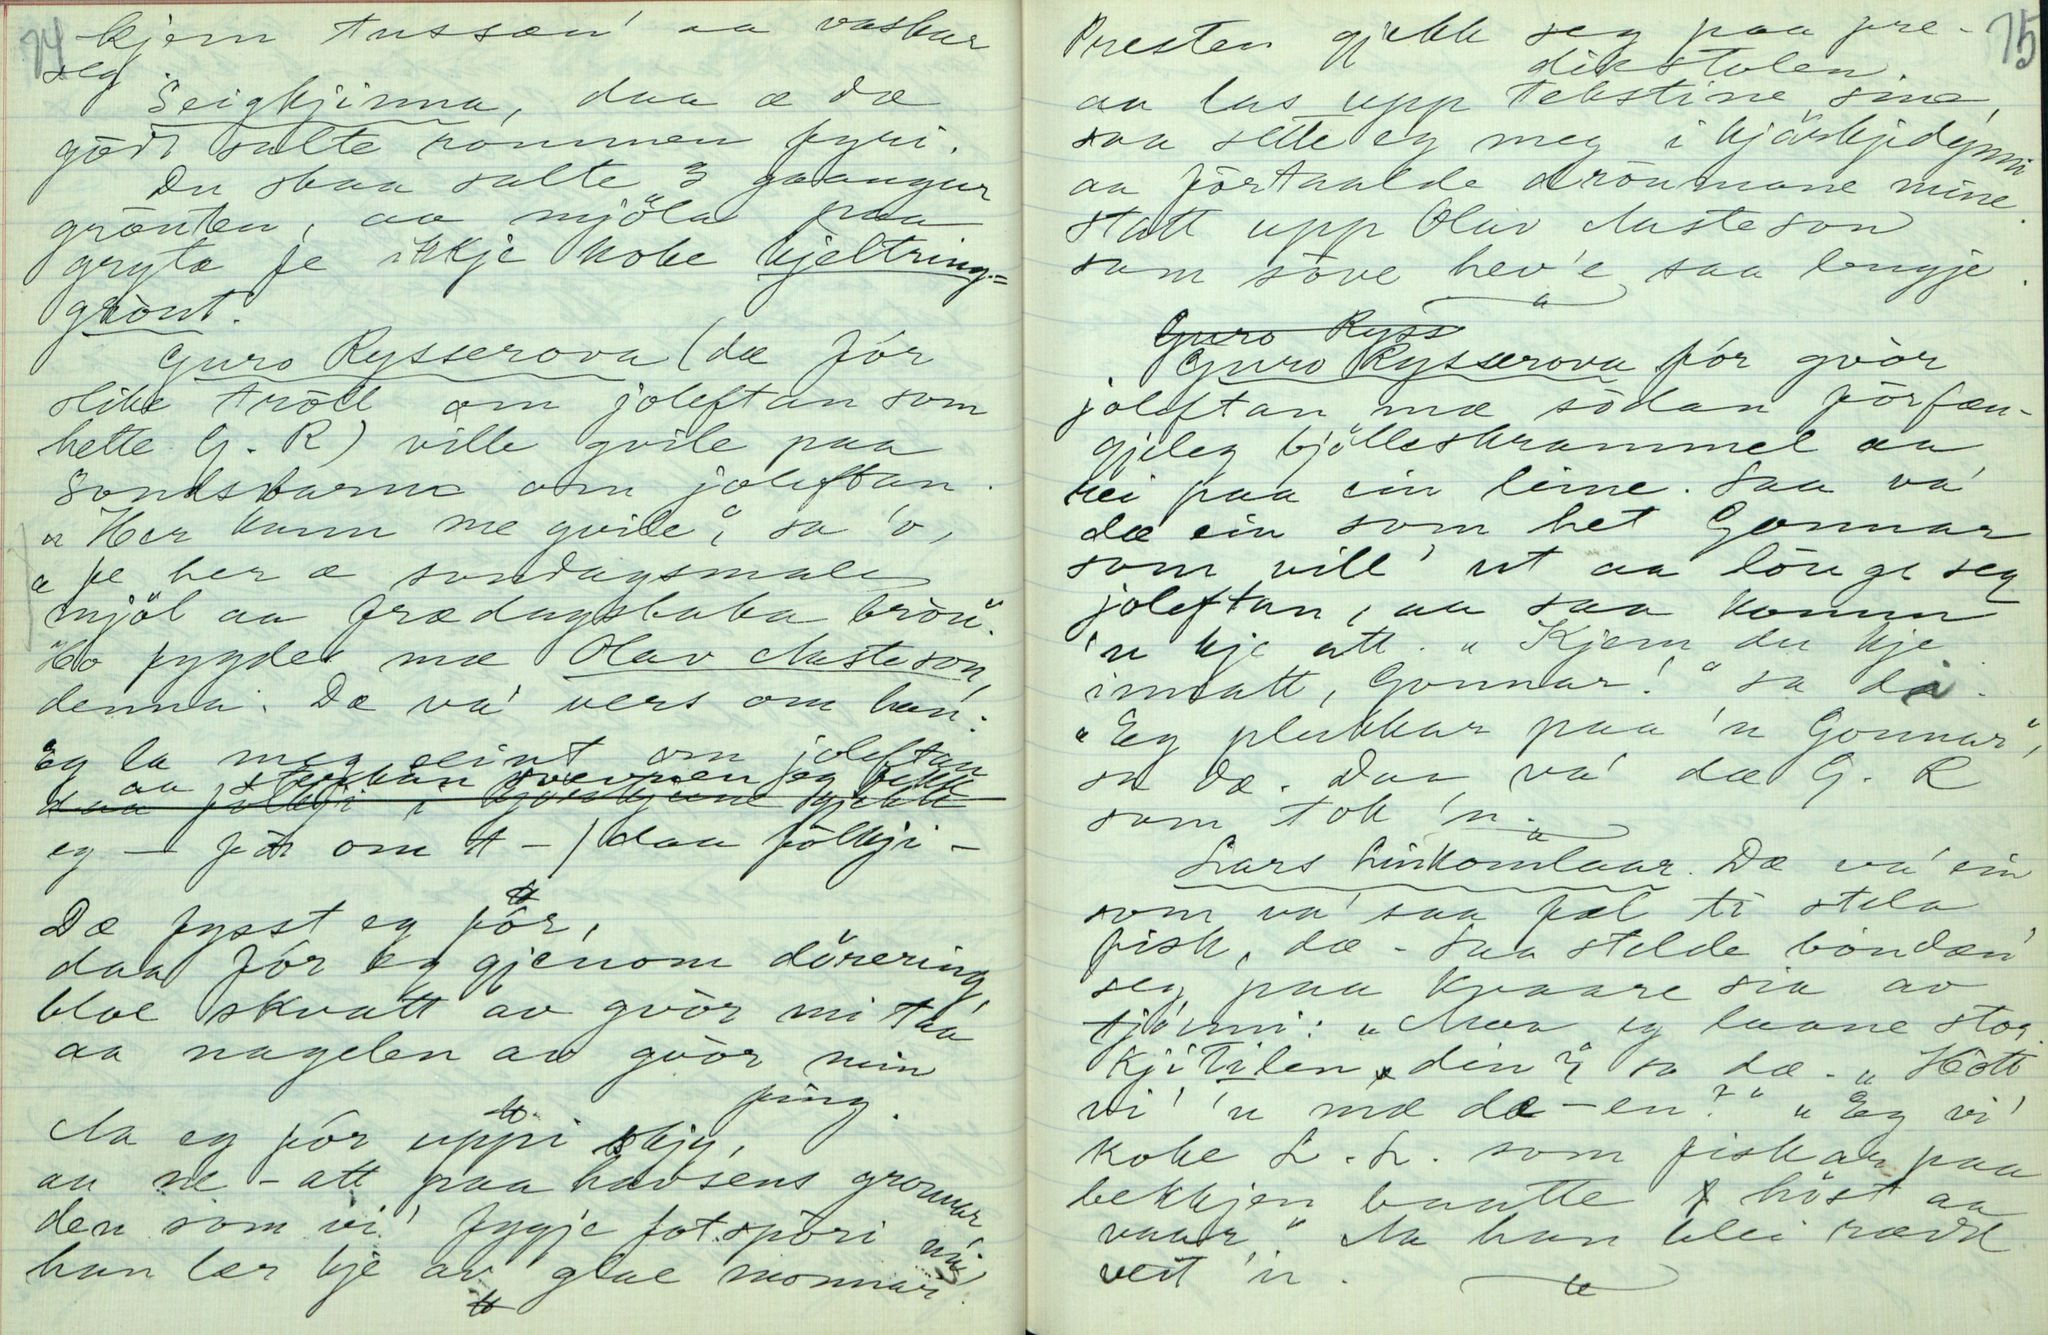 74
kjem tussæn' aa vaskar
seg.
Seigkjinna, daa æ dæ
gödt salte rommen fyri.
Du skaa salte 3 gaangur
grauten, aa mjöla paa
gryta fe ikkje koke kjeltring=
graut.
Guro Rysserova (dæ fór
slike tröll om joleftan som
hette G. R) ville gvile paa
om joleftan.
"Her kunn me gvile", sa 'o,
"fe her æ sundagsmale
mjöl aa frædagsbaka bröu".
Ho fygde mæ Olav Aasteson,
denna. Dæ va' vers om han:
Eg la meg seint om joleftan
aa sterkan svevnen eg fekk
daa fölkji i kjörkjune gjekk
eg – för om t – / daa fölkji –
Dæ fysst eg fór,
daa fór eg gjenom dörering,
bloe skvatt av gvór mi taa
aa nagelen av gvór min
fing.
Aa eg fór uppi skjy,
aa ne-att paa havsens gronnar
den som vi' fygje fotspöri mi
han lær kje av glae monnar.
75
Presten gjekk seg paa pre-
dikstolen
aa las upp Tekstine sine,
saa sette eg meg i kjörkjedynni
aa förtaalde draumane mine.
Statt upp Olav Aasteson
som söve hev'e saa lengje.
Guro Ryss
Guro Rysserova fór gvór
joleftan mæ sodan förfæn-
gjeleg bjölleskrammel aa
rei paa ein leine. Saa va'
dæ ein som het Gonnar
som vill' ut aa löuge seg
joleftan, aa saa komm
'n kje att. "Kjem du kje
innatt, Gonnar!" sa di.
"Eg plukkar paa 'n Gonnar",
sa dæ. Daa va' dæ G. R
som tok 'n.
Lars Linkomlaar. Dæ va' ein
som va' saa fæl ti stela
fisk, dæ – Saa stelde bóndæn'
seg paa kvaare sia av
tjönni: "Maa eg laane stor
kjitilen din?" sa dæ. "Hött
vi' 'n mæ dæ-en?" "Eg vi'
koke L. L. som fiskar paa
bekkjen baatte höst aa
vaar" Aa han blei rædd
veit 'n.